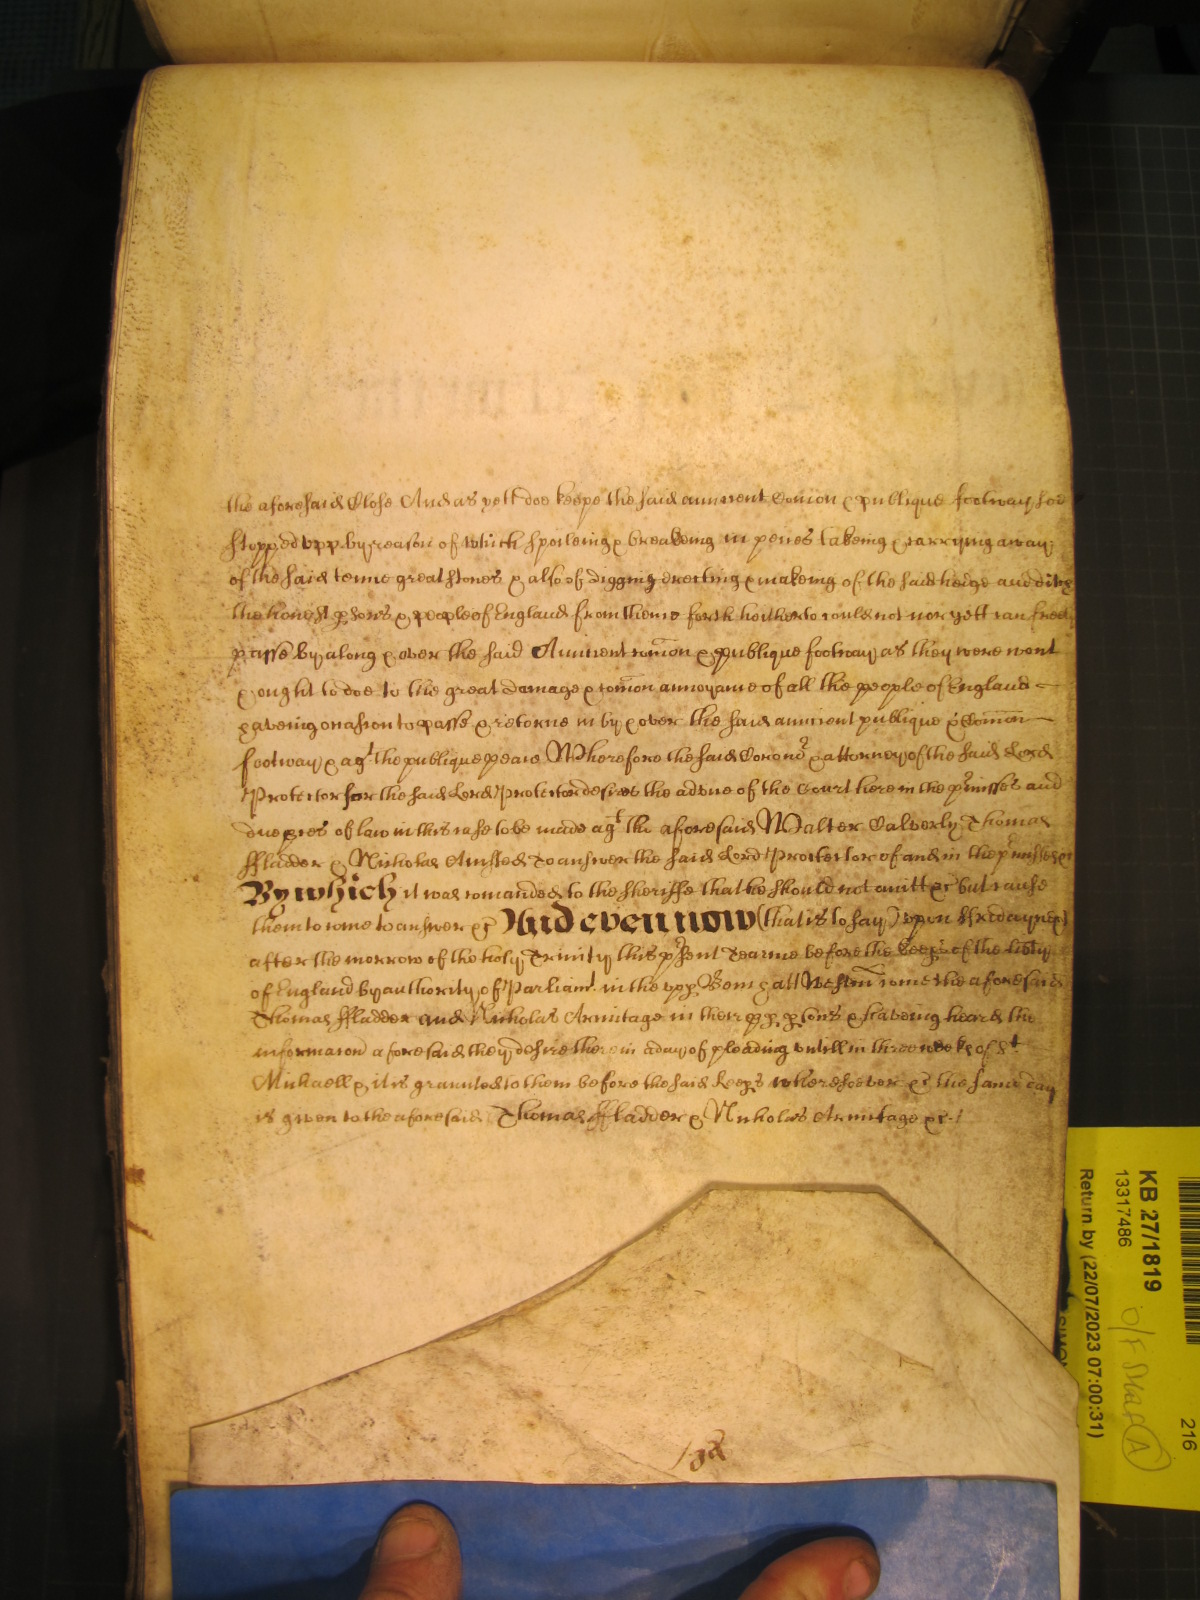 the aforesaid Close And as yett doe keepe the said auncient Comon & publique footway soe
stopped upp by reason of which spoileing & breakeing in peices takeing & carrying away
of the said tenne great stones & also of digging erecting & makeing of the said hedge and ditch
the honest psons & people of England from thence forth hitherto could not nor yett can freely
passe by along & over the said Auncient comon & publique footway as they were wont
& ought to doe to the great damage & comon annoyance of all the people of England
haveing occasion to passe & retorne in by & over the said auncient publique & Comon
footway & agt the publique peace Wherefore the said Coronr & attorney of the said Lord
Protector for the said Lord Protector desires the advice of the Court here in the pmisses and
due pces of law in this case to be made agt the aforesaid Walter Calverly Thomas
ffladder & Nicholas to answer the said Lord Protector of and in the pmisses &c
By which it was comanded to the Sheriffe that he should not omitt &c but cause
them to come to answer &c And even now (that is to say) upon next
after the morrow of the holy Trinity this psent Tearme before the keeps of the liberty
of England by authority of Parliamt in the upp Bench att Westm come the aforesaid
Thomas ffladder and Nicholas Armitage in their pp psons & haveing heard the
informacon aforesaid they desire therein a day of pleading untill in three weeks of St
Michaell & it is graunted to them before the said keeps wheresoever &c the same day
is given to the aforesaid Thomas ffladder & Nicholas Armitage &c.
KB 27/1819
13317486
Return by (22/07/2023 07:00:31)
216
O/F Map A